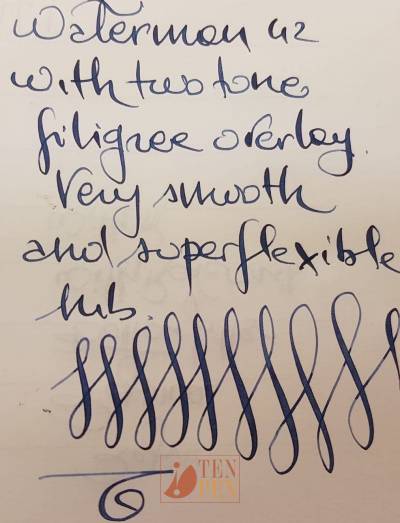 Waterman 42
with two tone
filigree overlay.
Very smooth
and superflexible
nib.
TEN
PEN